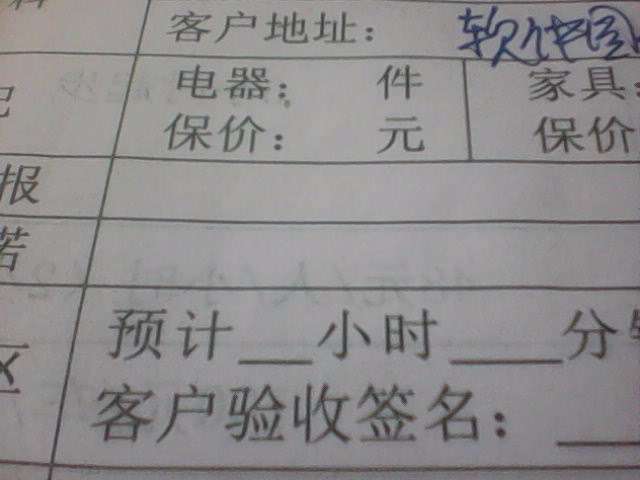 客户地址： 软件园
电器： 件 家具：
保价： 元 保价
报
若
预计__小时___分
区
客户验收签名：__